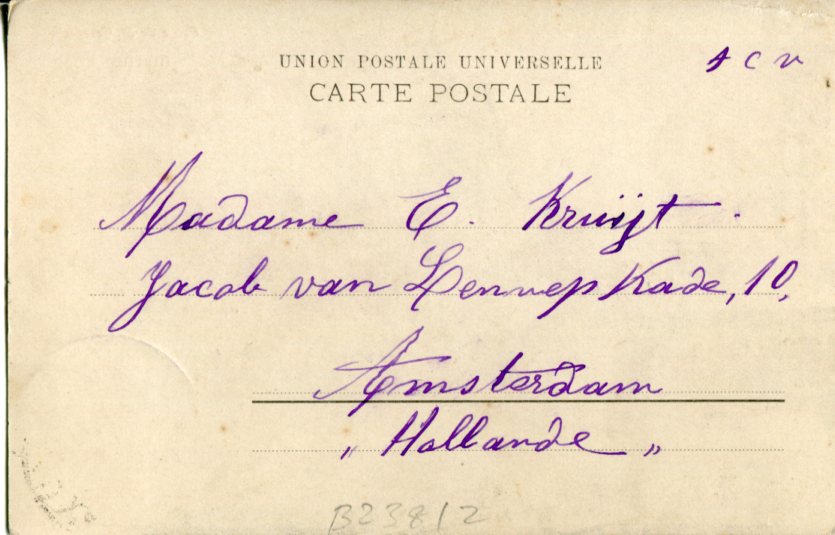 UNION POSTALE UNIVERSELLE
CARTE POSTALE
Madame E. Kruijt.
Jacob van Lennep Kade, 10,
Amsterdam
„ Hollande „
B23812